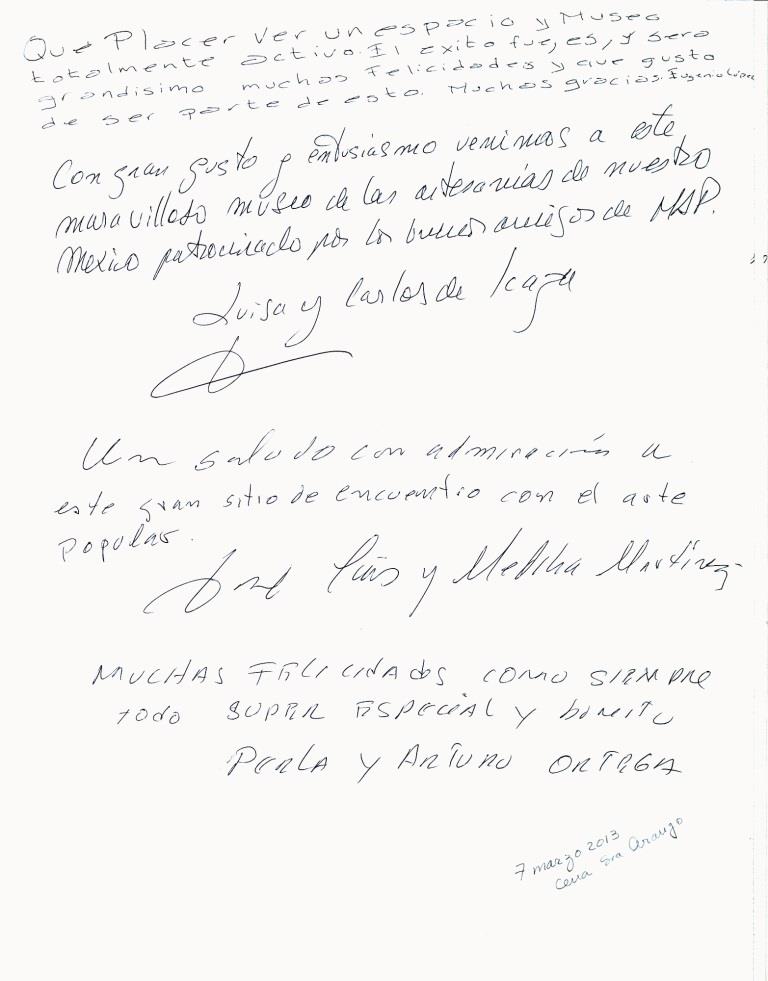 Que Placer ver un espacio y Museo
totalmente activo. El exito fue, es, y sera
grandisimo muchas felicidades y que gusto
de ser parte de esto. Muchas gracias. Eugenio López
Con gran gusto y entusiasmo venimos a este
maravilloso museo de las artesanías de nuestro
Mexico patrocinado por los buenos amigos de MAP.
Luisa y Carlos de Icaza
Un saludo con admiración a
este gran sitio de encuentro con el arte
popular.
José Luis y Martínez
MUCHAS FELICIDADES COMO SIEMPRE
todo SUPER ESPECIAL y bonito
PERLA Y ARTURO ORTEGA
7 marzo 2013
Cena Sra Araujo